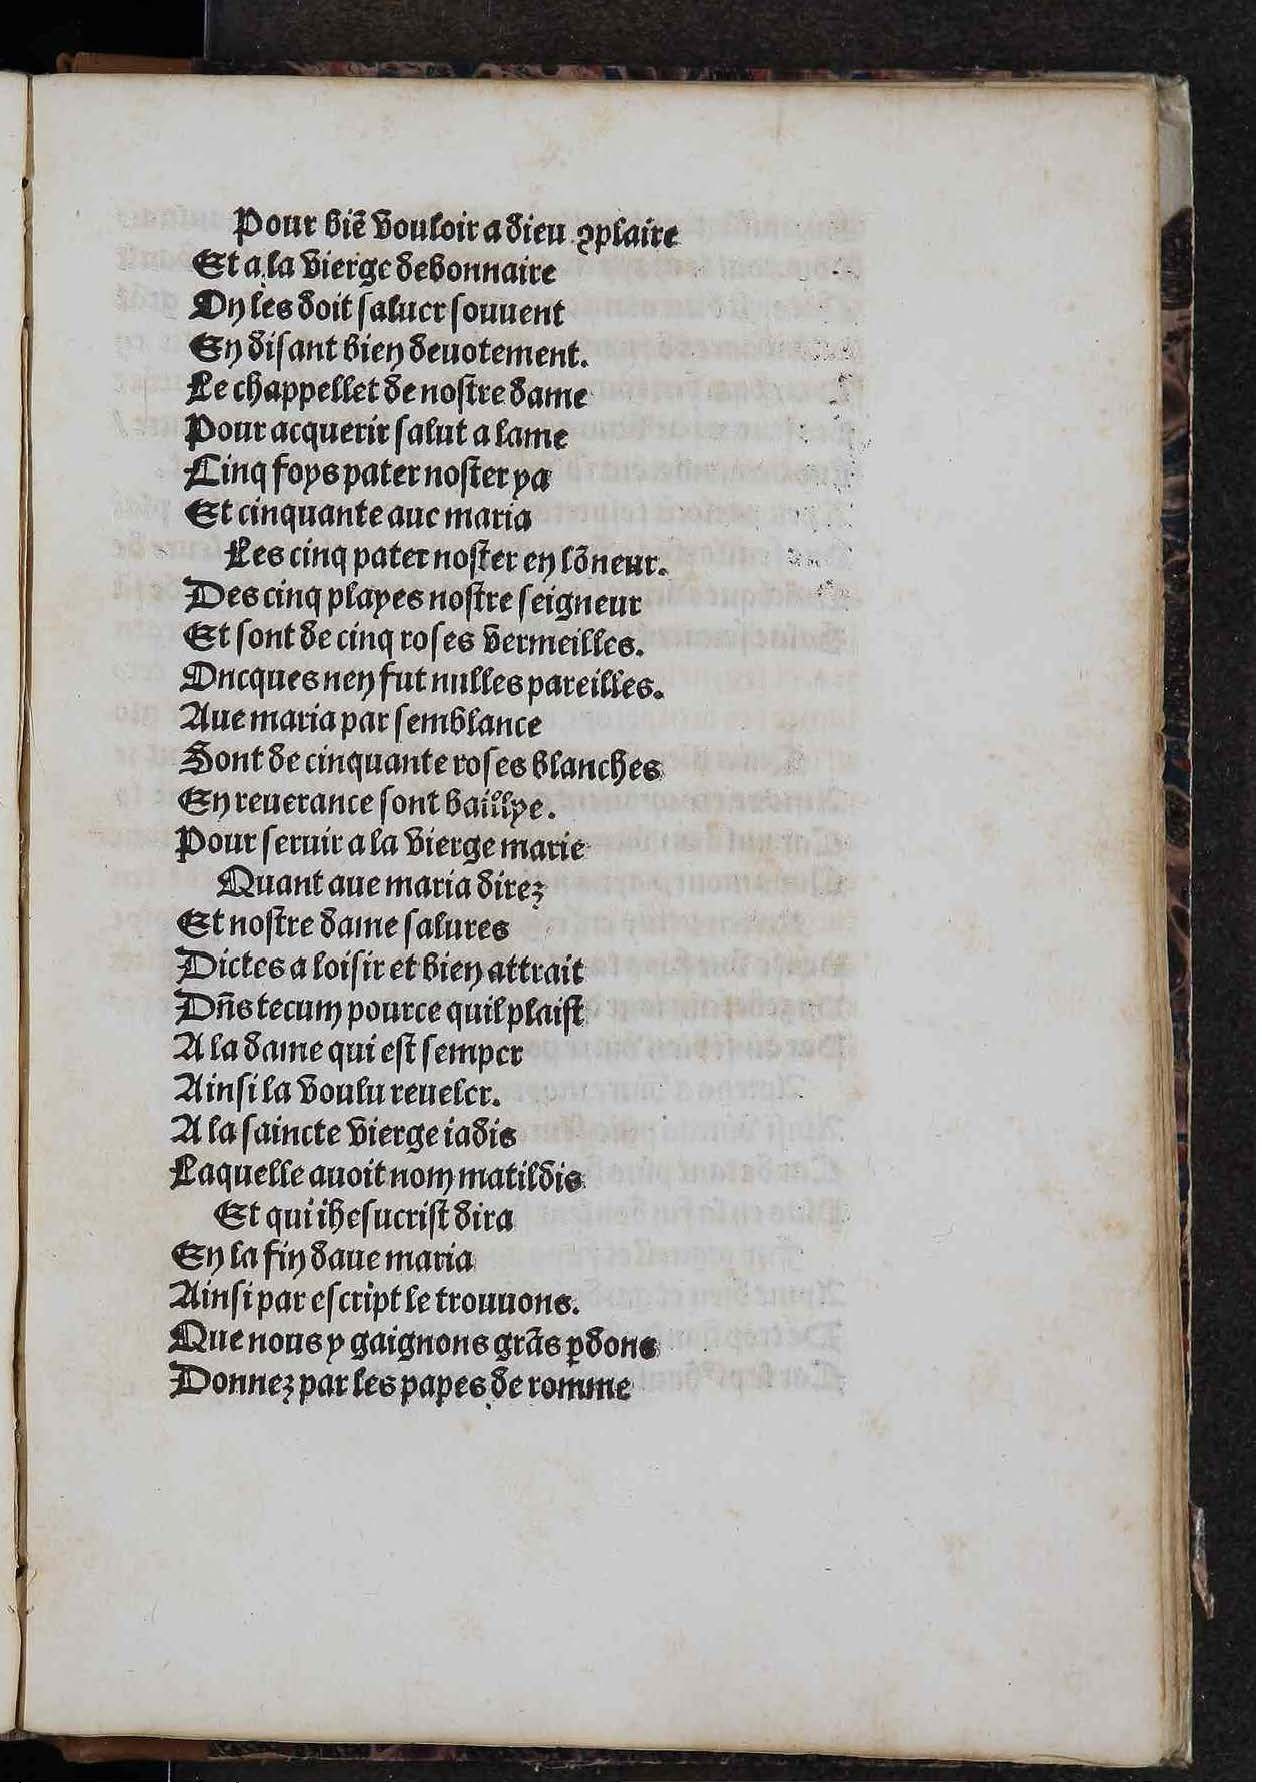 Pour biē vouloir a dieu ꝯplaire
Et a la vierge debonnaire
On les doit saluer souuent
En disant bien deuotement.
Le chappellet de nostre dame
Pour acquerir salut a lame
Cinq foys pater noster ya
Et cinquante aue maria
Les cinq pater noster en lōneur.
Des cinq playes nostre seigneur
Et sont de cinq roses vermeilles.
Oncques nen fut nulles pareilles.
Aue maria par semblance
Sont de cinquante roses blanches
En reuerance sont baillye.
Pour seruir a la vierge marie
Quant aue maria direz
Et nostre dame salures
Dictes a loisir et bien attrait
Dn̄s tecum pource quil plaist
A la dame qui est semper
Ainsi la voulu reueler.
A la saincte vierge iadis
Laquelle auoit nom matildis
Et qui ihesucrist dira
En la fin daue maria
Ainsi par escript le trouuons.
Que nous y gaignons grās ꝑdons
Donnez par les papes de romme